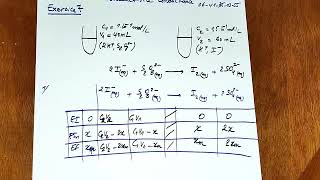 Exercice 7:
C₁ = 1.5·10⁻¹ mol/L
V₁ = 40 mL
(2K⁺, S₂O₈²⁻)
V₂ = 60 mL
(K⁺, I⁻)
2I⁻(aq) + S₂O₈²⁻(aq) → I₂(aq) + 2SO₄²⁻(aq)
1)
2I⁻(aq) + S₂O₈²⁻(aq) → I₂(aq) + 2SO₄²⁻
EI 0 C₂V₂ C₁V₁ / 0 0
x C₂V₂-2x C₁V₁-x / x 2x
EF xm C₂V₂-2xm C₁V₁-xm / xm 2xm